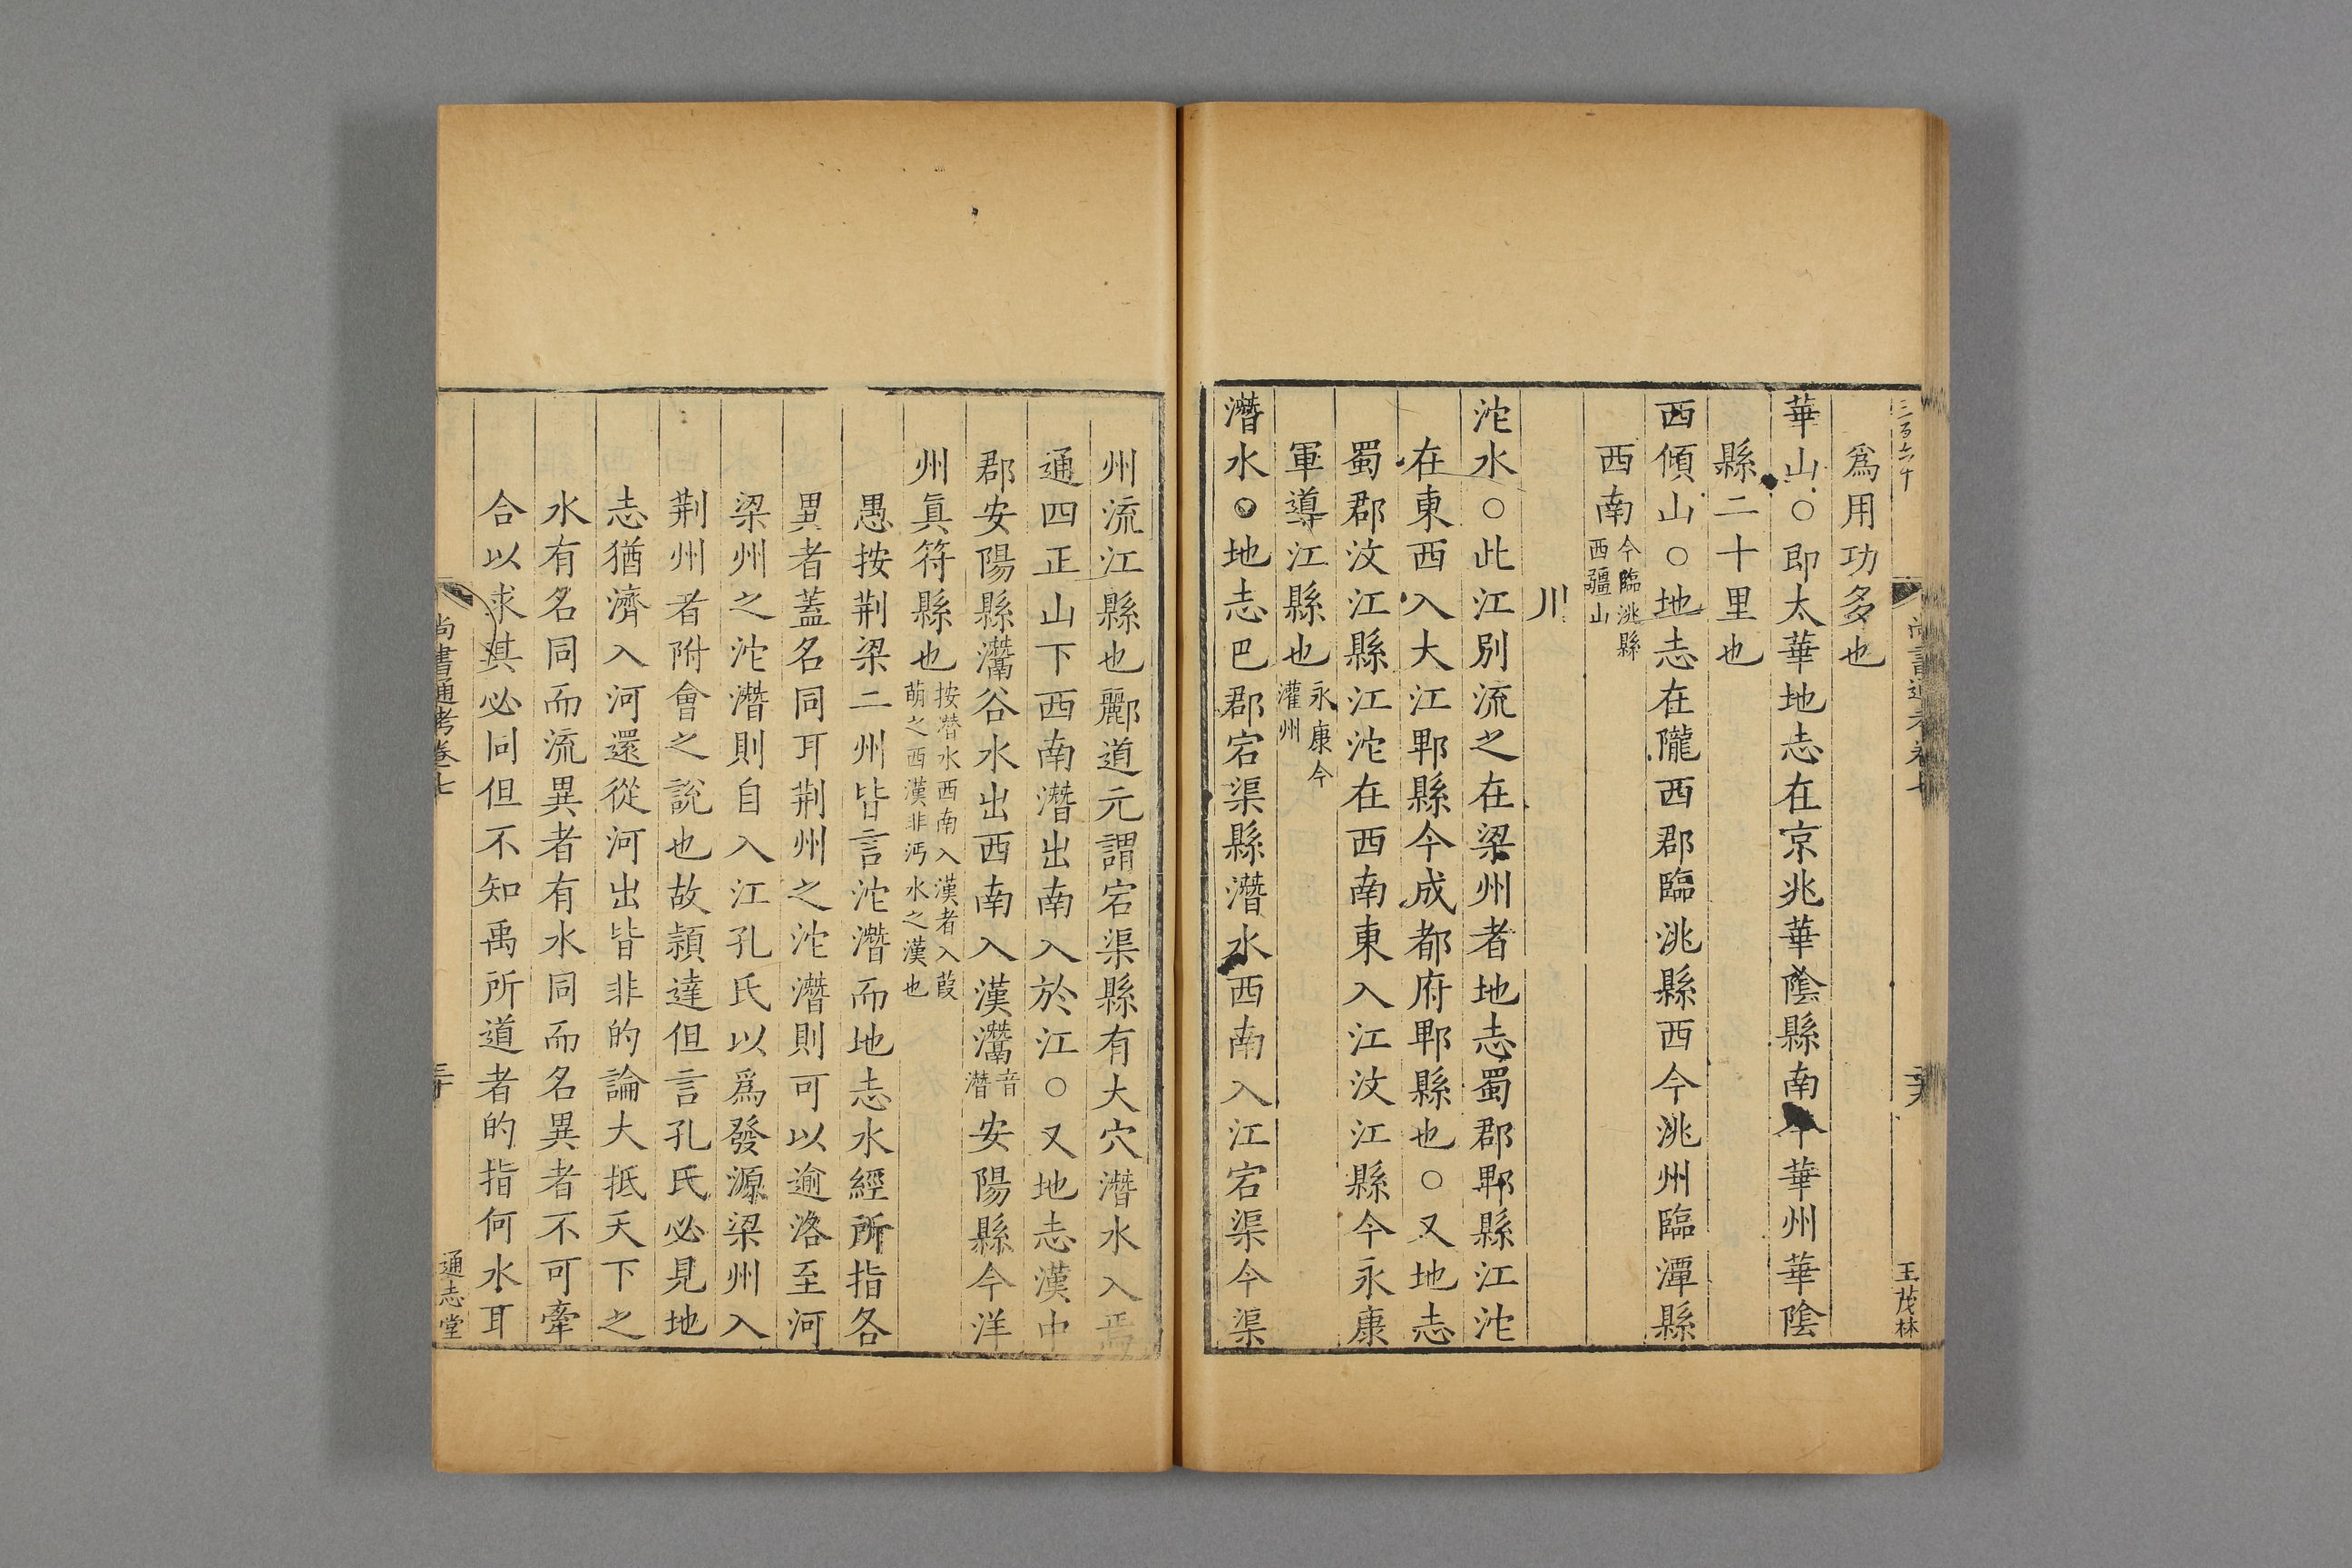 三百六十
尚書通考卷七
王茂林
爲用功多也
華山○即太華地志在京兆華陰縣南今華州華陰
縣二十里也
西傾山○地志在隴西郡臨洮縣西今洮州臨潭縣
西南今臨洮縣西疆山
川
沱水○此江別流之在梁州者地志蜀郡郫縣江沱
在東西入大江郫縣今成都府郫縣也○又地志
蜀郡汶江縣江沱在西南東入江汶江縣今永康
軍導江縣也永康今灌州
潛水○地志巴郡宕渠縣潛水西南入江宕渠今渠
州流江縣也酈道元謂宕渠縣有大穴潛水入焉
通四正山下西南潛出南入於江○又地志漢中
郡安陽縣灊谷水出西南入漢灊音潛安陽縣今洋
州眞符縣也按潛水西南入漢者入葭萌之西漢非沔水之漢也
愚按荆梁二州皆言沱潛而地志水經所指各
異者蓋名同耳荆州之沱潛則可以逾洛至河
梁州之沱潛則自入江孔氏以爲發源梁州入
荆州者附會之說也故頴達但言孔氏必見地
志猶濟入河還從河出皆非的論大抵天下之
水有名同而流異者有水同而名異者不可牽
合以求其必同但不知禹所道者的指何水耳
尚書通考卷七
三十
通志堂